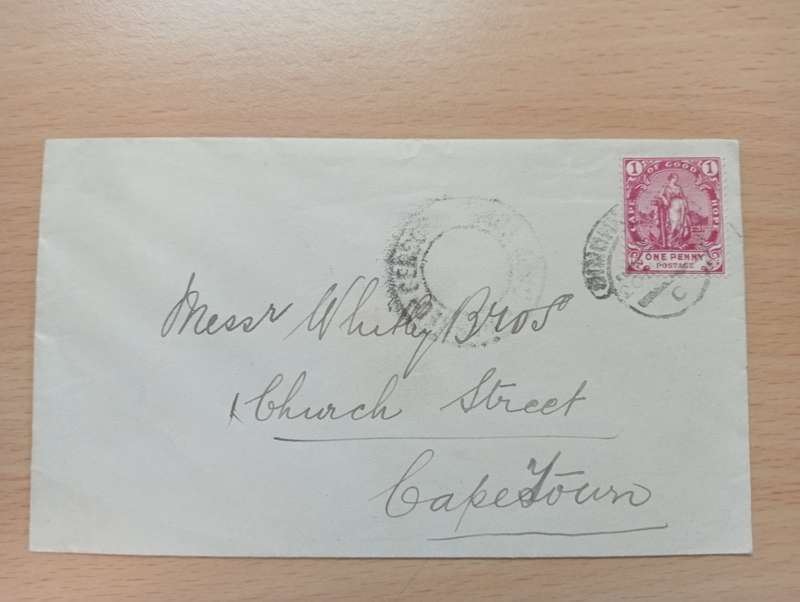 1 1
CAPE OF GOOD HOPE
ONE PENNY
POSTAGE
Messr Whitley Bros
Church Street
CapeTown